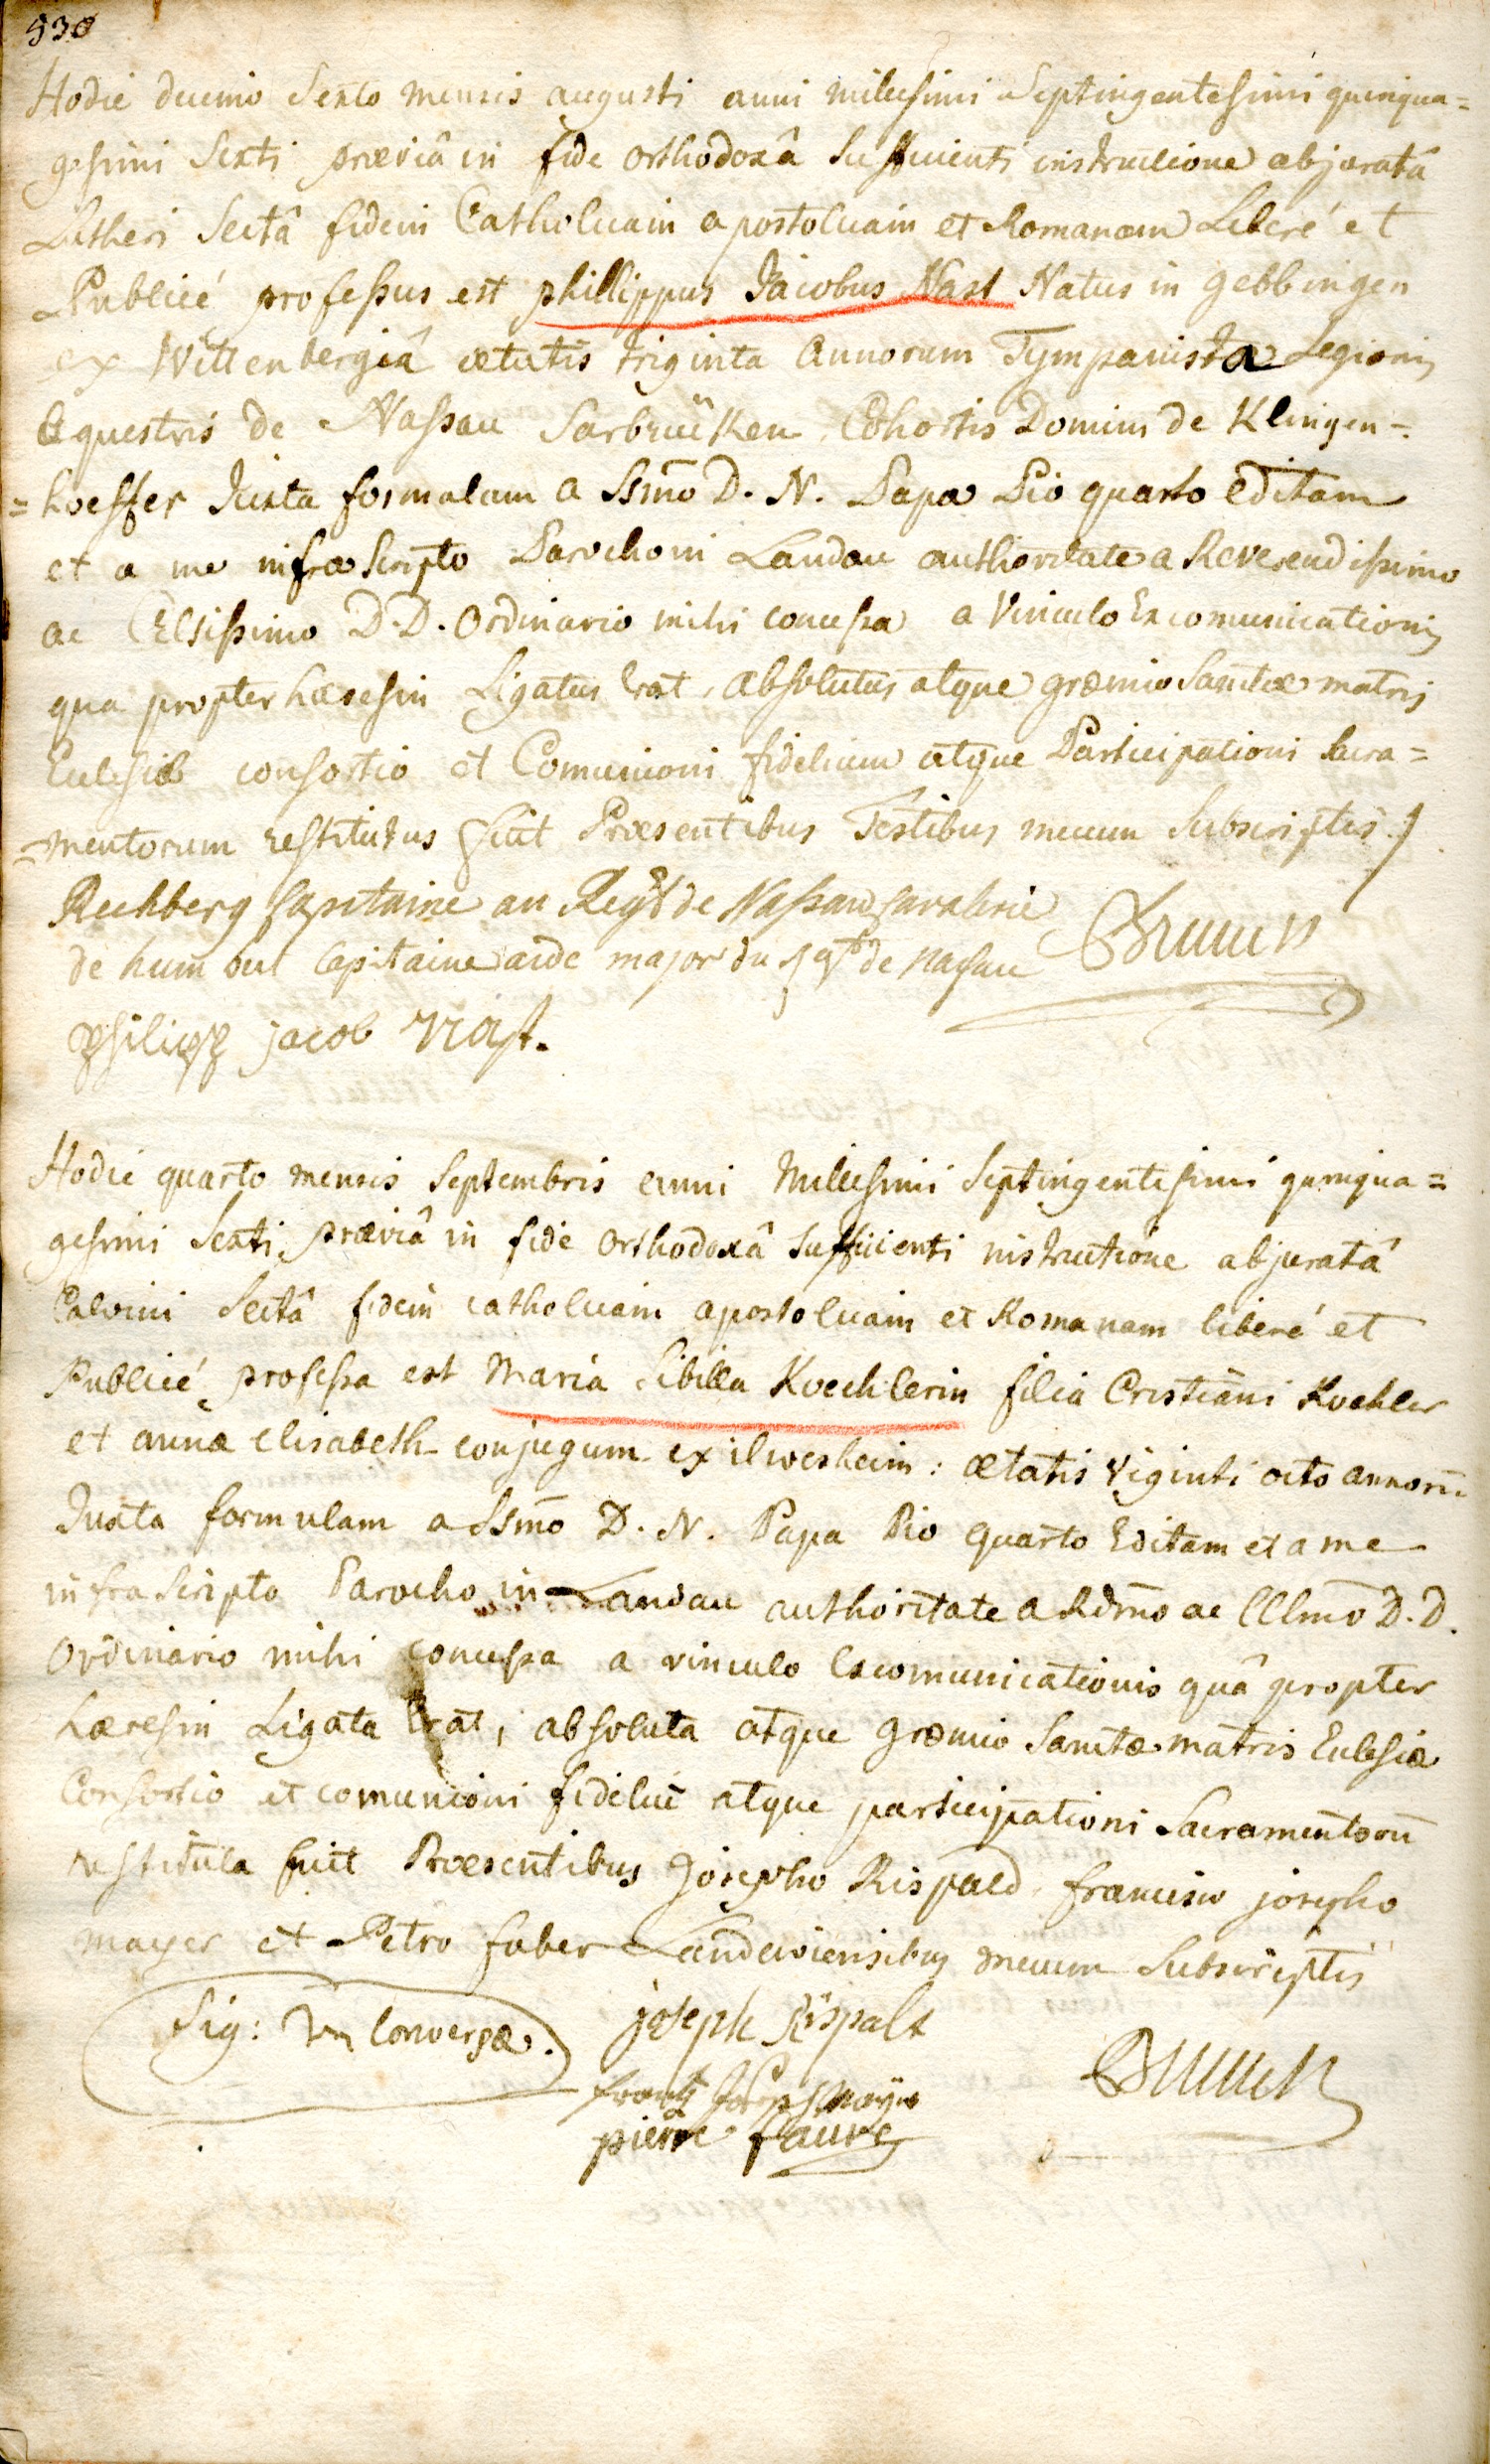 530
Hodie decimo Sexto mensis augusti anni millesimi Septingentesimi quinqua=
gesimi Sexti præviâ in fide orthodoxâ Sufficienti instructione abjuratâ
Lutheri Sectâ fidem Catholicam apostolicam et Romanam Liberé et
Publicé professus est phillippus Jacobus Nast Natus in gebbingen
ex Wittenbergiâ ætatis triginta Annorum Tympanista Legionis
Equestris de Nassau Sarbrüken Cohortis Domini de Klingen=
=hoeffer Juxta formulam a Ssm̄o D. N. Papa Pio quarto Editam
et a me infra Scripto Parocho in Landau authoritate a Reverendissimo
ac Celsissimo D. D. Ordinario mihi concessa a Vinculo Excomunicationis
qua propter hæresin Ligatus Erat, Absolutus atque græmio Sanctæ matris
Eclesiæ consortio et Comunioni fidelium atque Participationi Sacra=
=mentorum restitutus fuit Præsentibus Testibus mecum Subscriptis./
Rechberg Capitaine au Regt de Nassau Cavalerie
de hum Capitaine aide major du rgt de Nassau
philipp jacob Nast.
Hodie quarto mensis Septembris anni Millesimi Septingentesimi quinqua=
gesimi Sexti præviâ in fide orthodoxâ sufficienti instructione abjuratâ
Calvini Sectâ fidem catholicam apostolicam et Romanam liberé et
Publicé professa est Maria Sibilla Koechlerin filia Cristiani Koehler
et annæ elisabeth conjugum ex ilwesheim: ætatis viginti octo annorū
Juxta formulam a Ssm̄o D. N. Papa Pio quarto Editam et a me
infra Scripto Parocho in Landau authoritate a Rdm̄o ac Cllm̄o D. D.
Ordinario mihi concessa a vinculo Excomunicationis quâ propter
hæresin Ligata Erat, absoluta atque græmio Sanctæ matris Eclesiæ
Consortio et comunioni fideliū atque participationi Sacramentorū
restituta fuit Præsentibus Josepho Rispald, francisco josepho
mayer et Petro faber Landaviensibus mecum Subscriptis
Sig: Conversæ.
joseph Rispalt
frantz Joseph Mayer
pierre faure